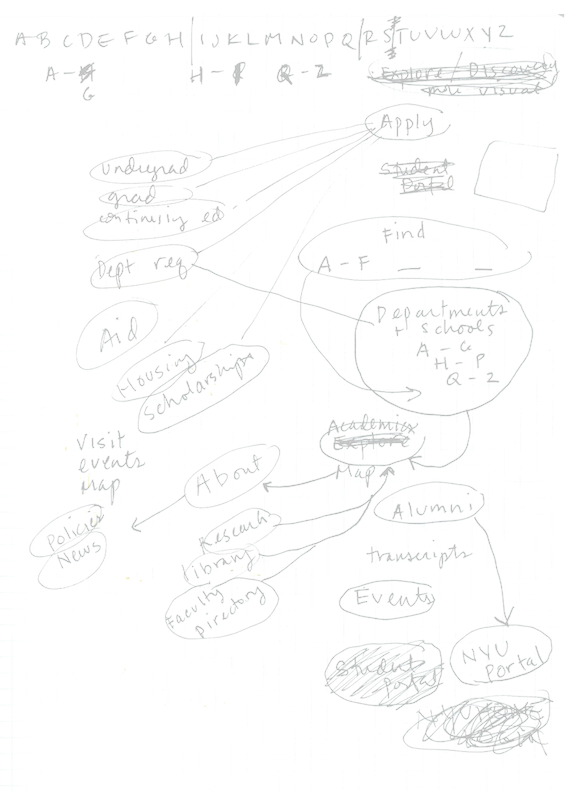 A B C D E F G H | I J K L M N O P Q | R S T U V W X Y Z
A - G
H - P
Q - Z
Explore / Discovery
more visual
Apply
undergrad
grad
continuing ed
Student
Portal
Find
A - F — —
Dept req
Departments
+ Schools
A - G
H - P
Q - Z
Aid
Housing
Scholarships
Academics
Explore
Map
Visit
events
Map
About
Alumni
Policies
News
Research
library
Faculty
directory
transcripts
Events
Student
Portal
NYU
Portal